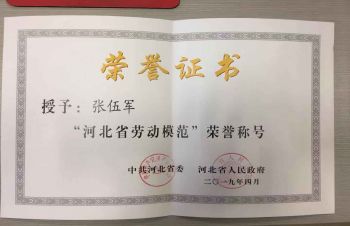 荣誉证书
授予：张伍军
“河北省劳动模范”荣誉称号
中共河北省委 河北省人民政府
二〇一九年四月